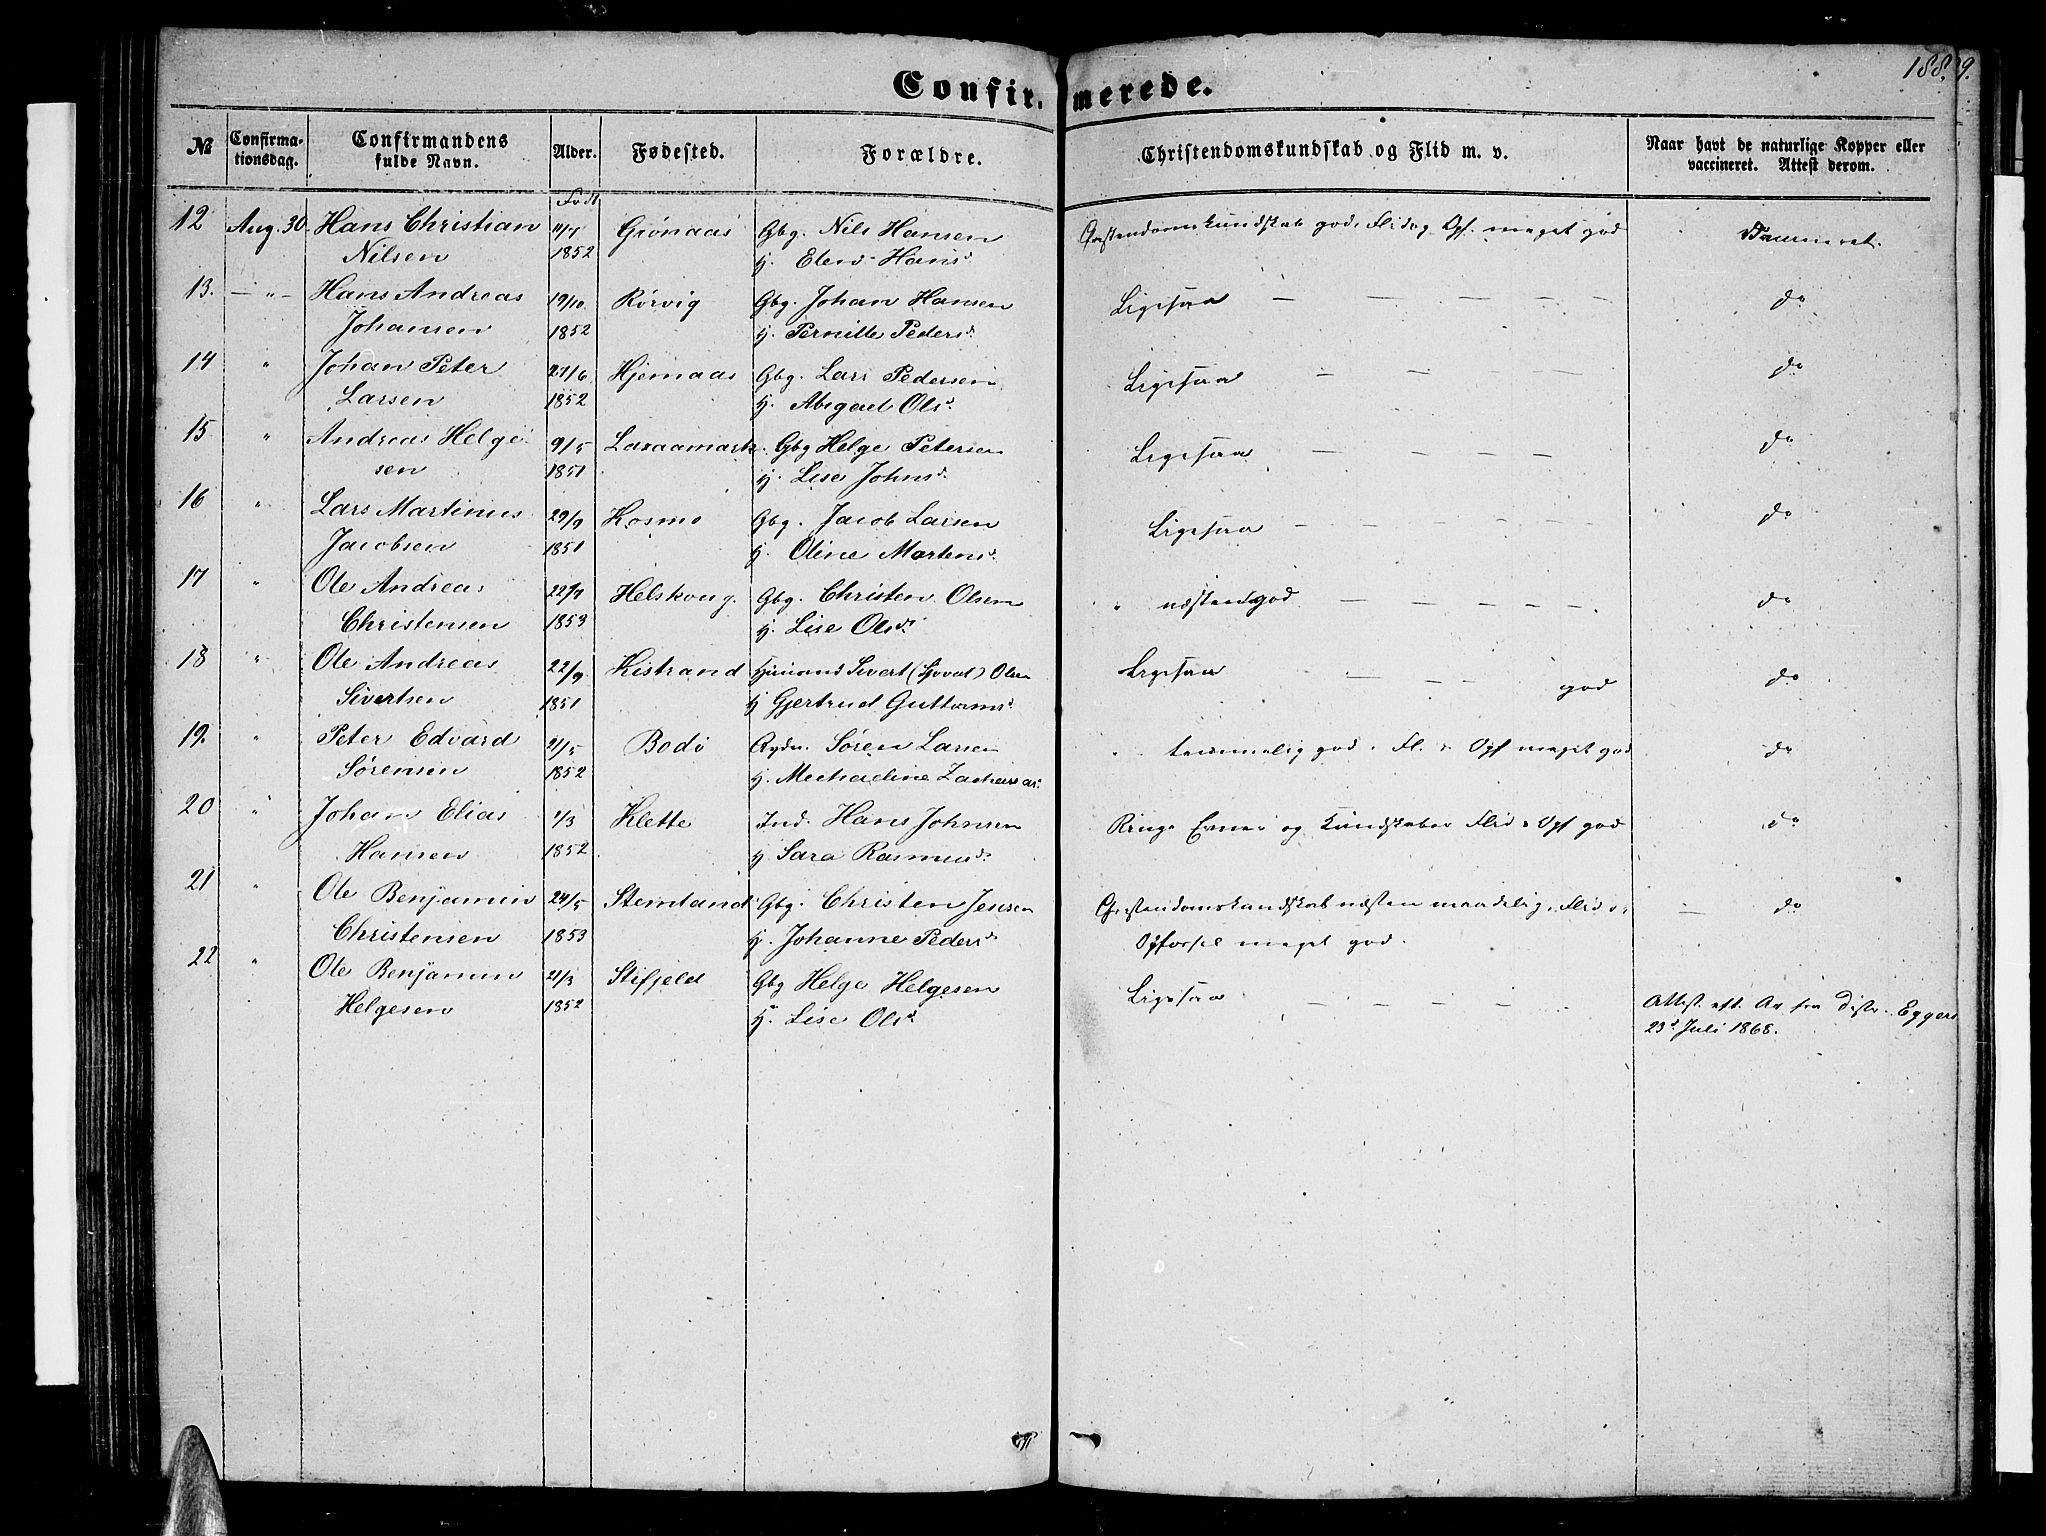 188. 9.
Confir, merede.
№ Confirma- tionsdag. Confirmandens fulde Navn. Alder. Fødested. Forældre. Christendomskundskab og Flid m. v. Naar havt de naturlige Kopper eller vaccineret. Attest derom.
Født
12 Aug. 30 Hans Christian 11/7 Grönaas Gbg. Nils Hansen Christendomskundskab god, Flid og Opf. meget god Vaccineret.
Nilsen 1852 H. Elen Hansd.
13. — " — Hans Andreas 19/10 Rörvig Gbg. Johan Hansen Ligesaa — — — — — do
Johansen 1852 H. Pernille Pedersd.
14 " Johan Peter 27/6 Hjemaas Gbg. Lars Pedersen Ligesaa — — — — do
Larsen 1852 H. Abigael Olsd.
15 " Andreas Helge 9/5 Laxaamark. Gbg Helge Petersen Ligesaa — — — — — do
sen 1851 H. Lise Johnsd.
16 " Lars Martinus 29/9 Kosmo Gbg. Jacob Larsen Ligesaa — — — — — do
Jacobsen 1851 H. Oline Martensd.
17 " Ole Andreas 22/7 Helskoug. Gbg. Christen Olsen " næsten god — — — — — do
Christensen 1853 H. Lise Olsd.
18 " Ole Andreas 22/9 Kistrand Sivert (Syvert) Olsen Ligesaa — — — god do
Sivertsen 1851 H Gjertrud Guttormsd.
19. " Peter Edvard 21/5 Bodö Sören Larsen " temmelig god. Fl. & Opf meget god do
Sörensen 1852 H. Michaeline Zachariasd.
20 " Johan Elias 4/3 Klette Ind. Hans Johnsen Ringe Evner og Kundskaber Flid & Opf god do
Hansen 1852 H Sara Rasmusd.
21 " Ole Benjamin 24/5 Stemland Gbg. Christen Jensen Christendomskundskab næsten maadelig, Flid & — do
Christensen 1853 H. Johanne Pedersd Opførsel meget god.
22 " Ole Benjamin 21/3 Stifjeld Gbg Helge Helgesen Ligesaa — — — — —
Helgesen 1852 H. Lise Olsd. Attest Eggers
23d Juli 1868.